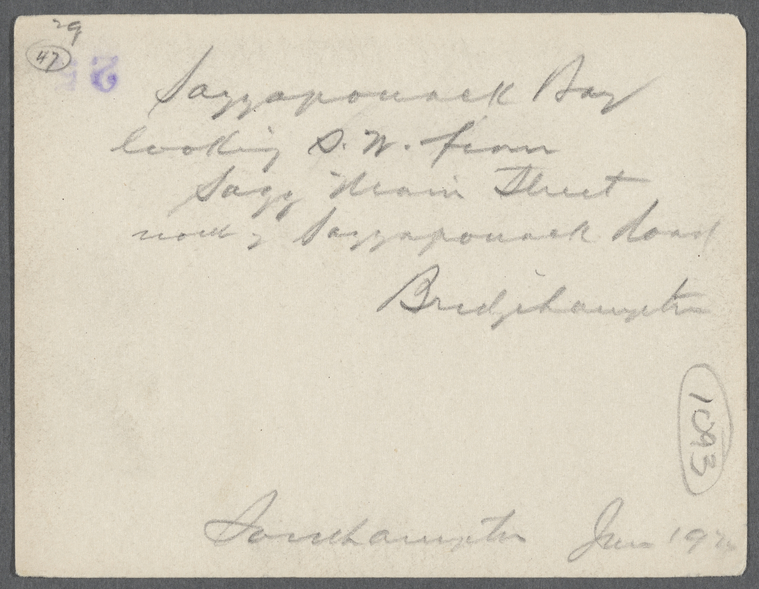 29
47
2
Saggaponack Bay
looking S. W. from
Sagg Main Street
north of Saggaponack Road
Bridgehampton
1093
Southampton